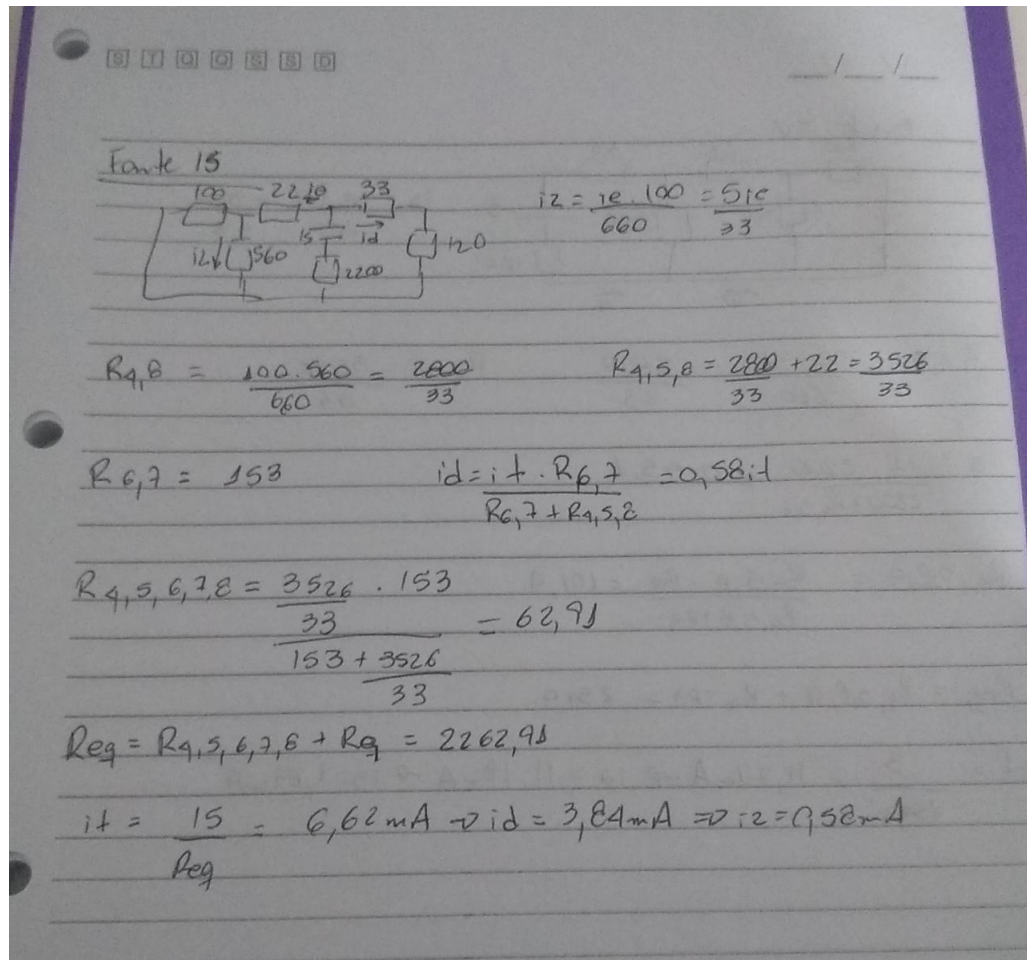 S T Q Q S S D
__/__/__
Fonte 15
100 22 ie 33
i2 = ie.100/660 = 5ie/33
15 id 120
i2↓ 560 2200
R4,8 = 100.560/660 = 2800/33
R4,5,8 = 2800/33 + 22 = 3526/33
R6,7 = 153
id = it . R6,7/R6,7 + R4,5,8 = 0,58it
R4,5,6,7,8 = 3526/33 . 153/153 + 3526/33 = 62,91
Req = R4,5,6,7,8 + R9 = 2262,91
it = 15/Req = 6,62mA → id = 3,84mA => i2 = 0,58mA